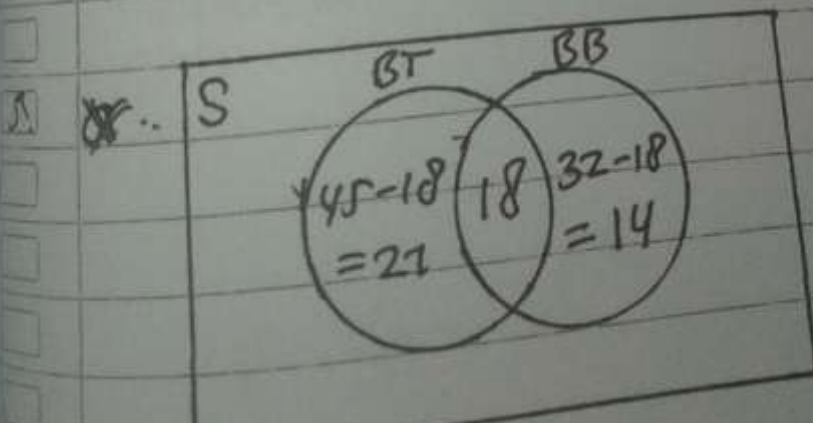 S
BT
BB
45-18
=27
18
32-18
=14